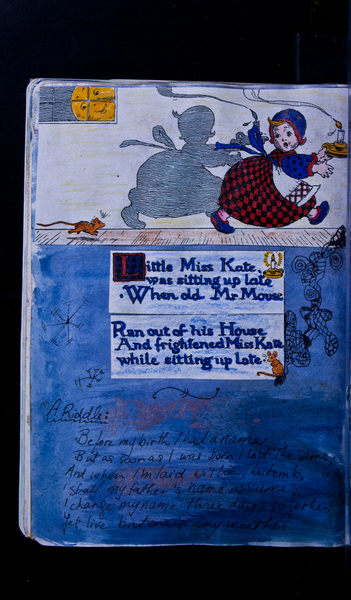 Little Miss Kate,
was sitting up late
When old Mr Mouse
Ran out of his House
And frightened Miss Kate
while sitting up late.
A Riddle:
Before my birth I had a name,
But as soon as I was born I lost the same,
And when I'm laid within tomb,
I shall my father's name assume
I change my name three days together
Yet live but one in any weather.